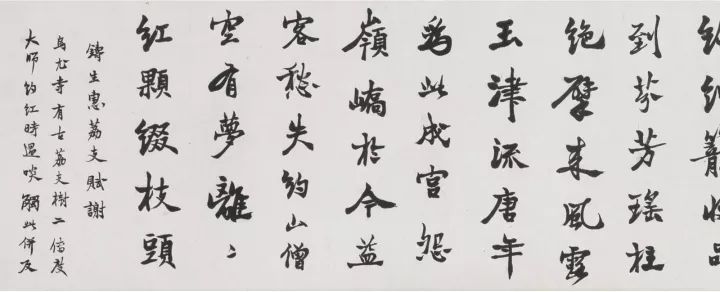 到芬芳瑤柱
絕擘来風露
玉津流唐年
為此成宮怨
嶺嶠於今益
客愁失約山僧
空有夢離〻
紅顆綴枝頭
鑄生惠荔支賦謝
烏尤寺有古荔支樹二傳度
大師約紅時過啖觸此併及